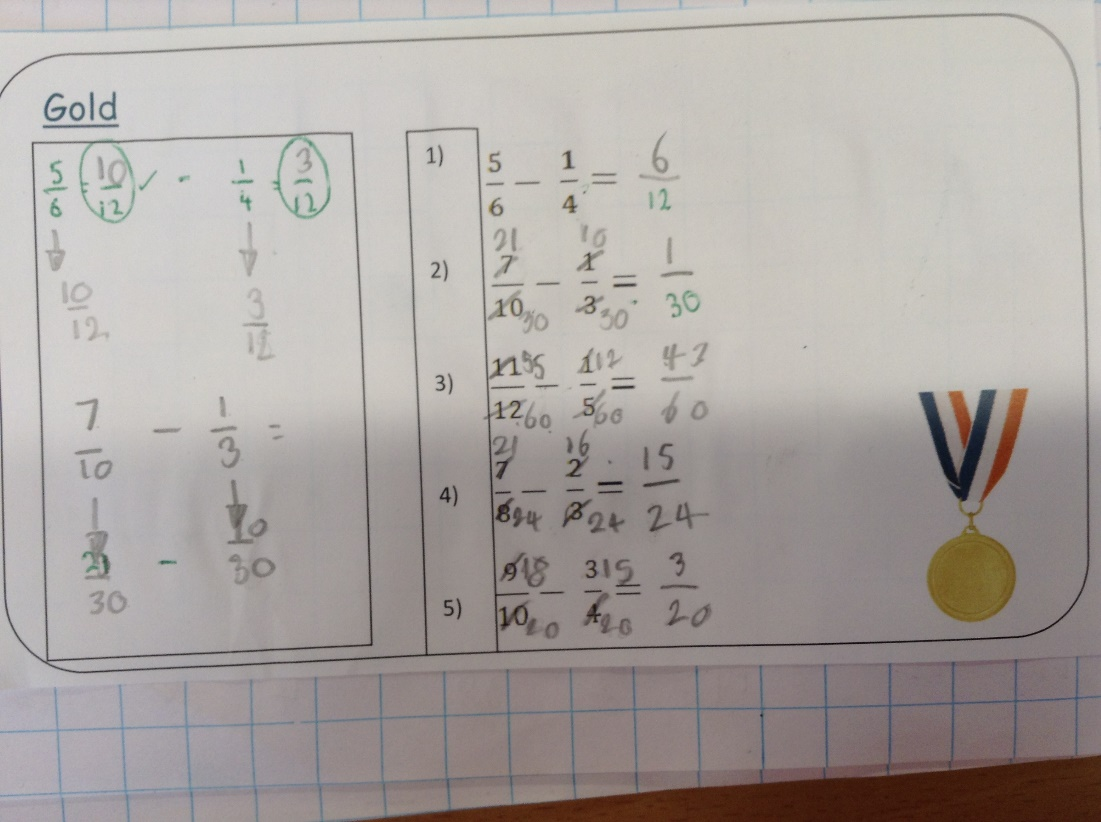 Gold
5/6 = 10/12 ✓ - 1/4 = 3/12
10/12 3/12
7/10 - 1/3 =
21/30 - 10/30
1) 5/6 - 1/4 = 6/12
21 10
2) 7/10 - 1/3 = 1/30
30 30
3) 11/12 - 1/5 = 43/60
55/60 12/60
21 16
4) 7/8 - 2/3 = 15/24
24 24
5) 9/10 - 3/4 = 3/20
18/20 15/20